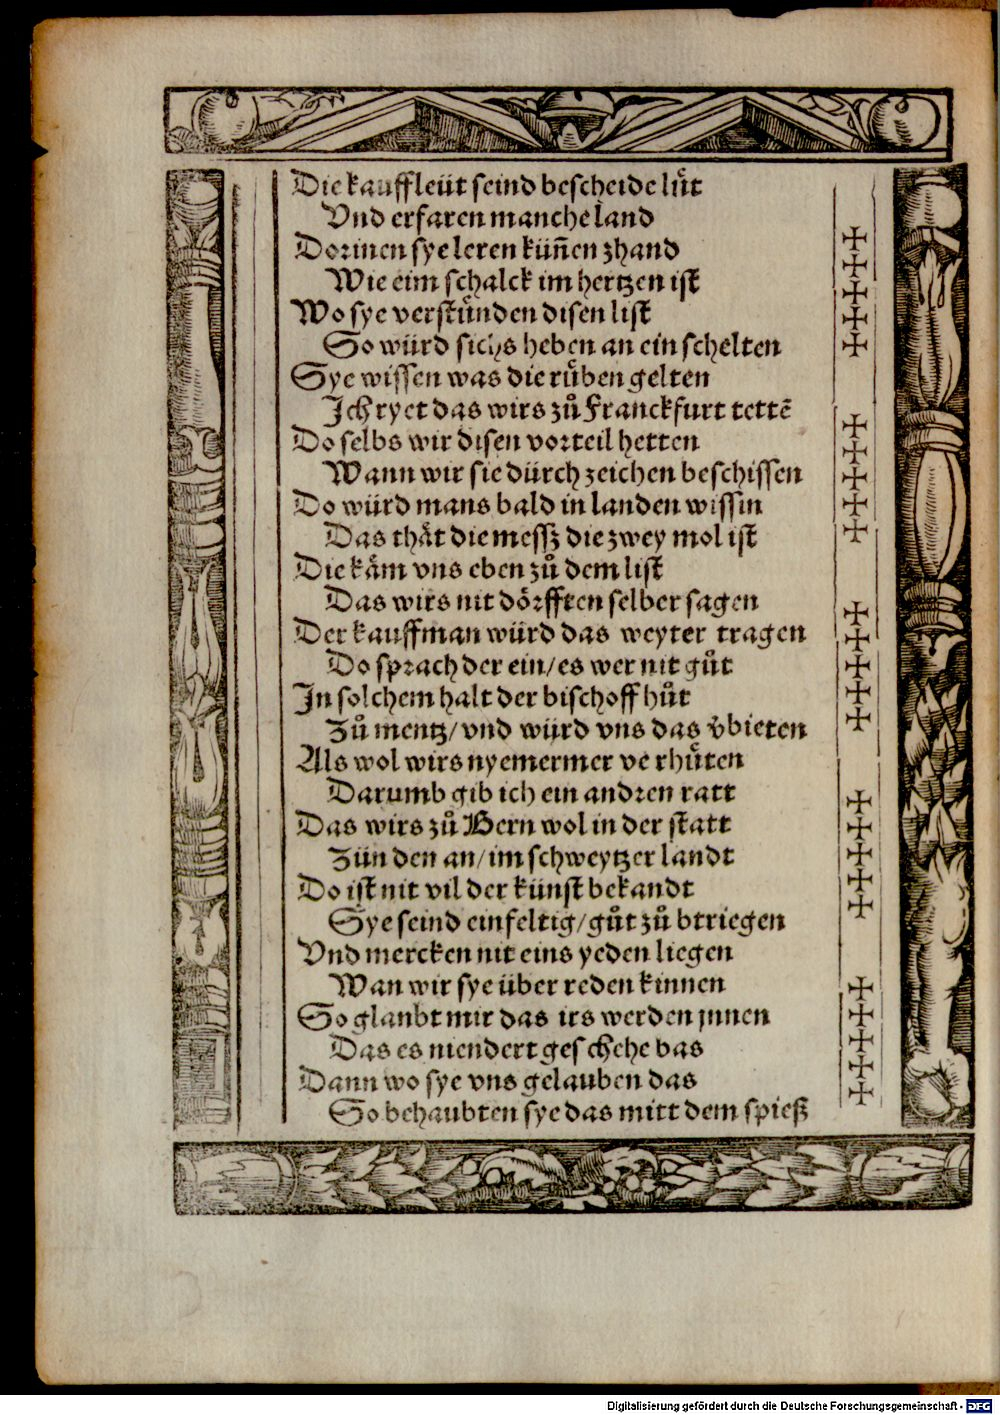 Die kauffleüt seind bescheide lüt
Vnd erfaren manche land
Dorinen sye leren küñen zhand
Wie eim schalck im hertzen ist
Wo sye verstünden disen list
So würd sichs heben an ein schelten
Sye wissen was die rüben gelten
Ich ryet das wirs zů Franckfurt tettē
Do selbs wir disen vorteil hetten
Wann wir sie dürch zeichen beschissen
Do würd mans bald in landen wissin
Das thät die messz die zwey mol ist
Die käm vns eben zů dem list
Das wirs nit dörfften selber sagen
Der kauffman würd das weyter tragen
Do sprach der ein/es wer nit gůt
In solchem halt der bischoff hůt
Zů mentz/vnd würd vns das v̊bieten
Als wol wirs nyemermer ve rhüten
Darumb gib ich ein andren ratt
Das wirs zů Bern wol in der statt
Zün den an/im schweytzer landt
Do ist nit vil der künst bekandt
Sye seind einfeltig/gůt zů btriegen
Vnd mercken nit eins yeden liegen
Wan wir sye über reden kinnen
So glaubt mir das irs werden jnnen
Das es niendert geschehe bas
Dann wo sye vns gelauben das
So behaubten sye das mitt dem spieß
Digitalisierung gefördert durch die Deutsche Forschungsgemeinschaft - DFG